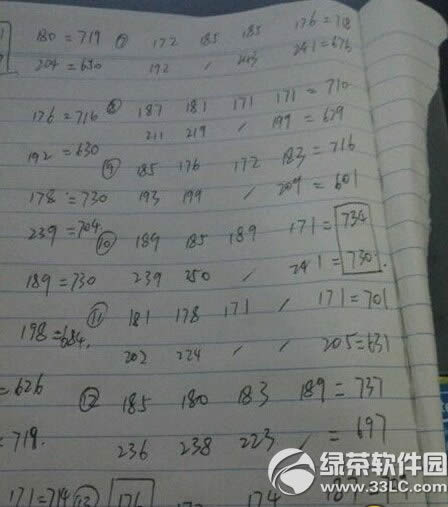 180=719 ⑦ 172 185 185 176=718
204=650 192 / 243 241=676
176=716 ⑧ 187 181 171 171=710
211 219 / 199=629
192=630
⑨ 185 176 172 183=716
178=730 193 199 / 209=601
239=704
⑩ 189 185 189 171=734
189=730 239 250 / 241=730
⑪ 181 178 171 / 171=701
198=684. 202 224 / / 205=631
=626 ⑫ 185 180 183 189=737
=719. 236 238 223 / =697
171=714 ⑬ 176 174
绿茶软件园
www.33LC.com